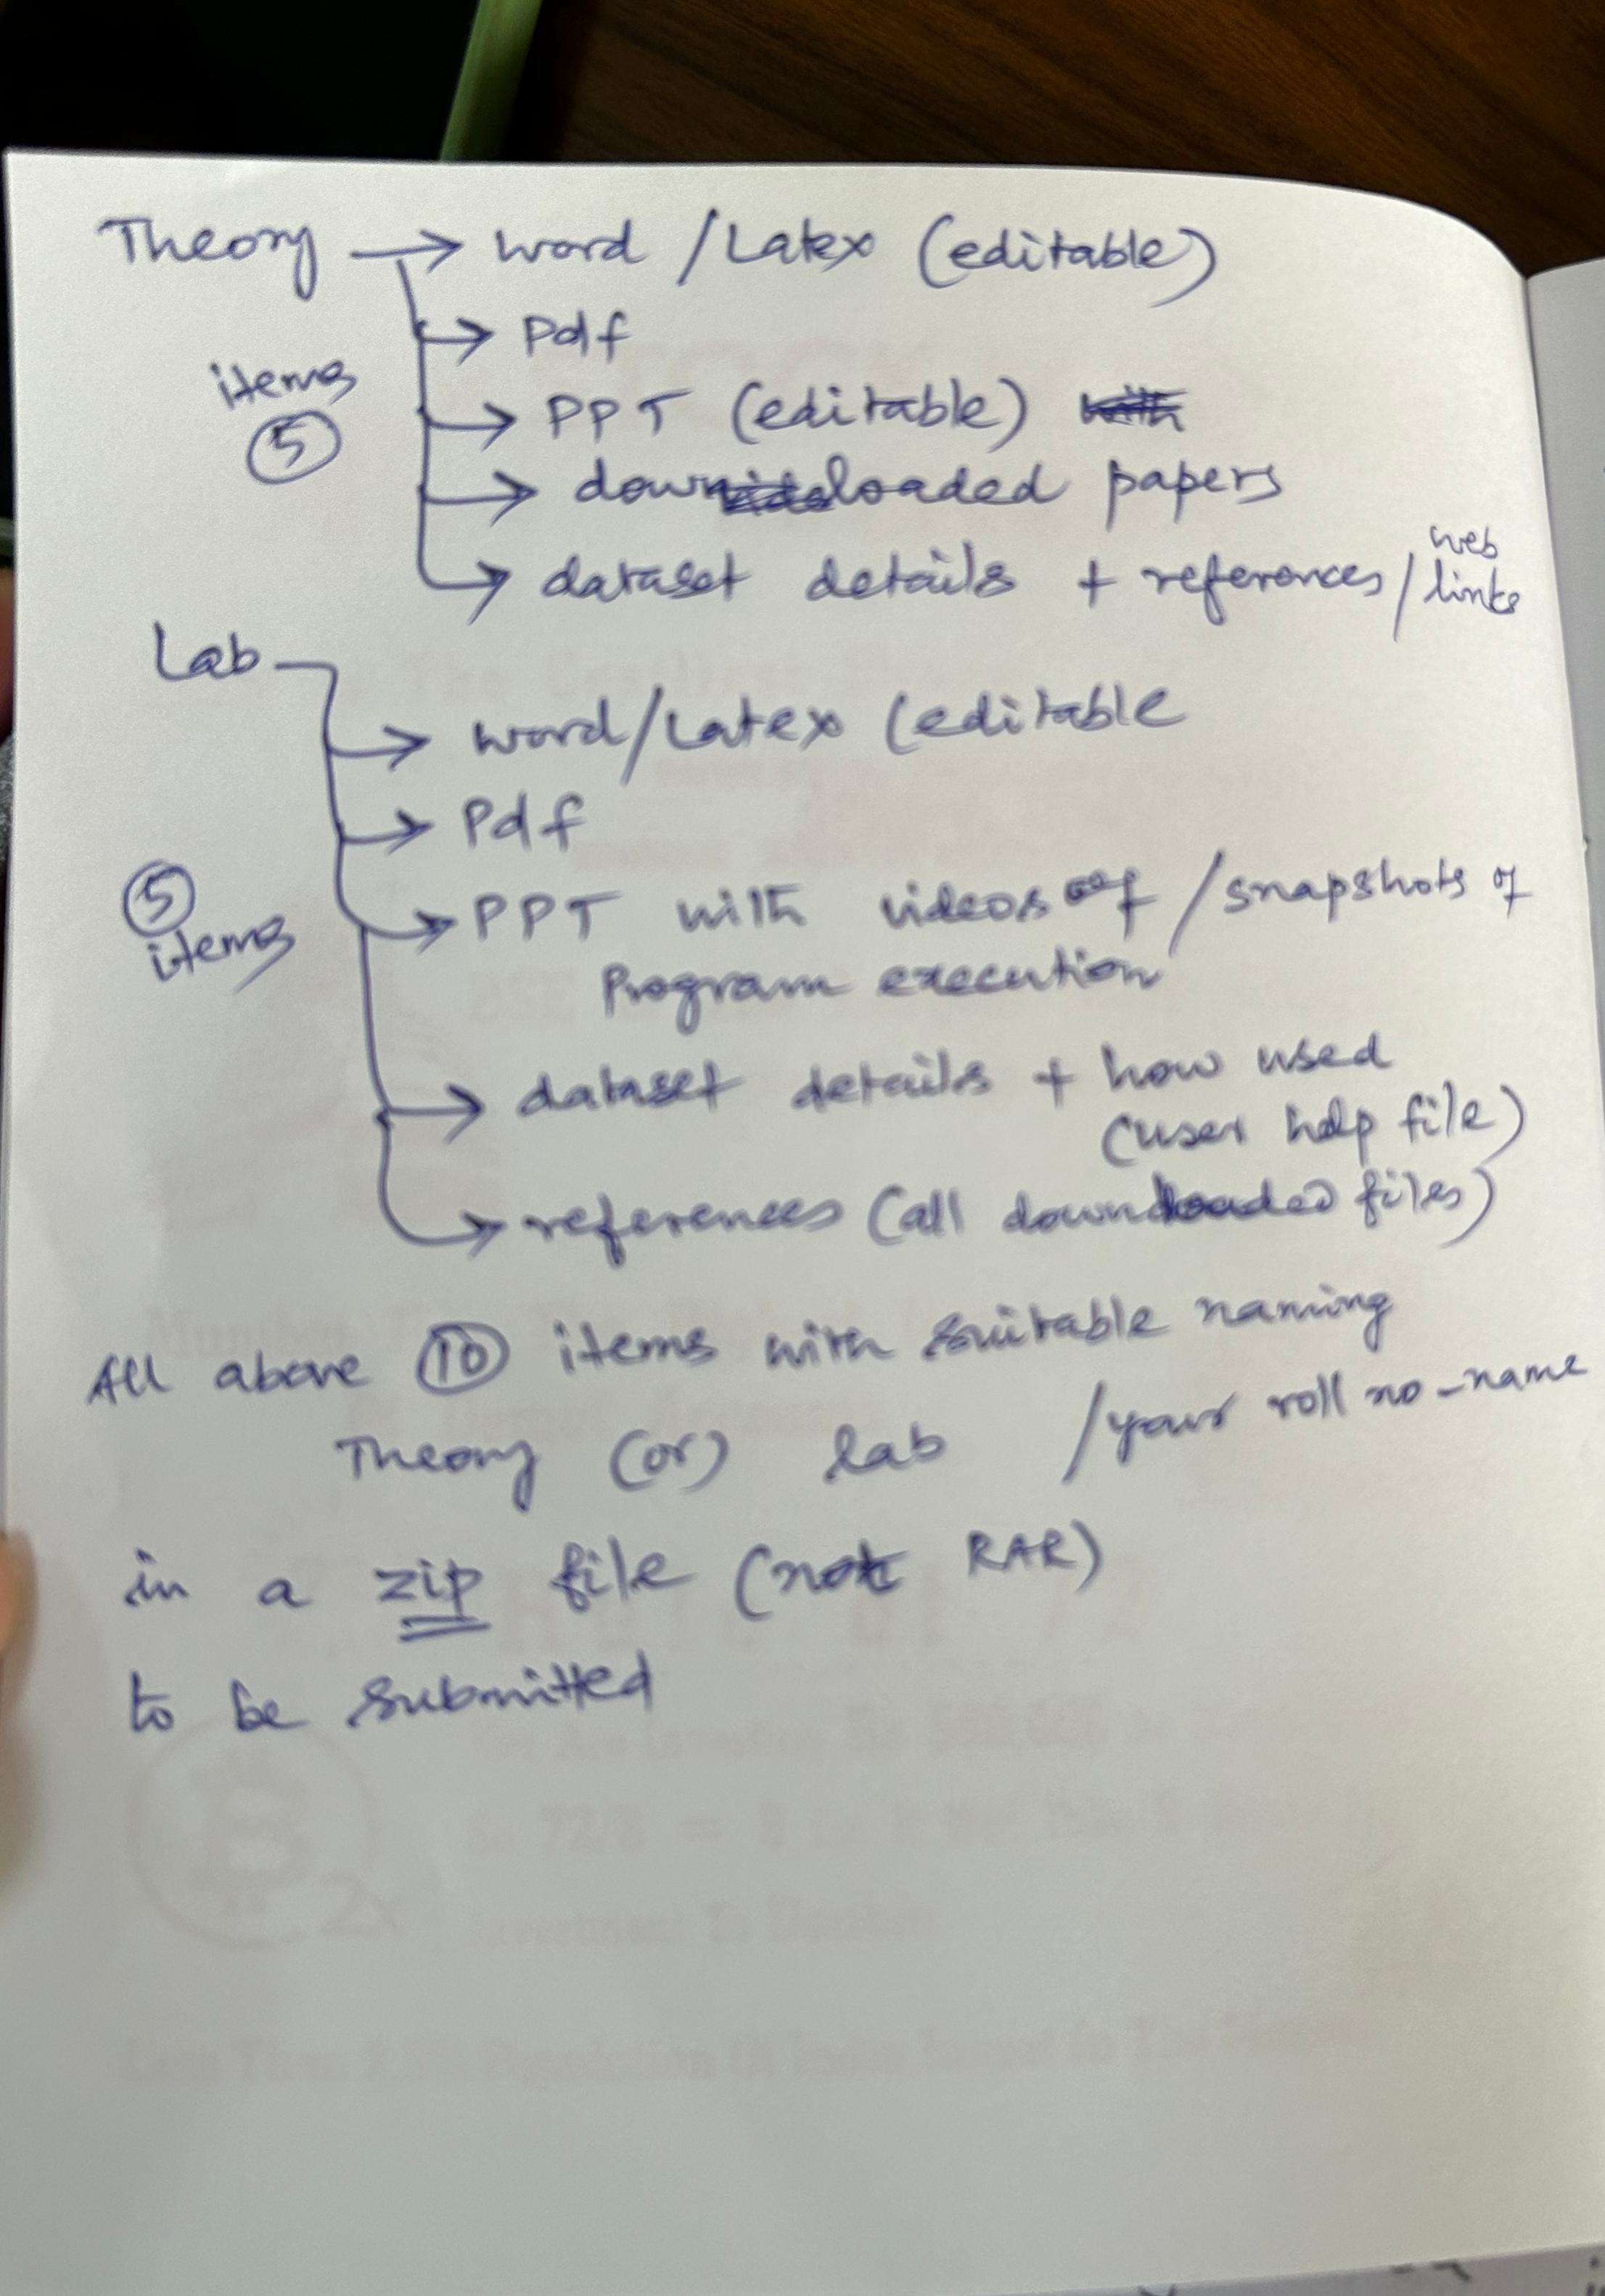 Theory → word / Latex (editable)
→ Pdf
items
→ PPT (editable)
5
→ downloaded papers
→ dataset details + references / web links
Lab
→ word/Latex (editable
→ Pdf
5
items
→ PPT with videos of / snapshots of
Program execution
→ dataset details + how used
(user help file)
→ references (all downloaded files)
All above 10 items with suitable naming
Theory (or) lab / your roll no - name
in a zip file (not RAR)
to be submitted